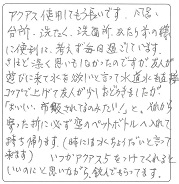 アクアス使用しても3長いです。風呂
台所、洗たく、洗面所、あたり前の様
に便利に、考えず毎日過ごしています。
さほど深く思いもしなかったのですが友が
遊びに来て水を飲いと言って水道水を直接
コップで上げて友人が少しおどろきましたが
「おいしい、市販されてるのみたい」と、それから
寄った折に必ず空のペットボトルへ入れて
持ち帰ります。(時には水ちょうだいと言って
来ます) いつかアクアス5をつけてくれると
いいのにと思いながら、飲んでもらってます。